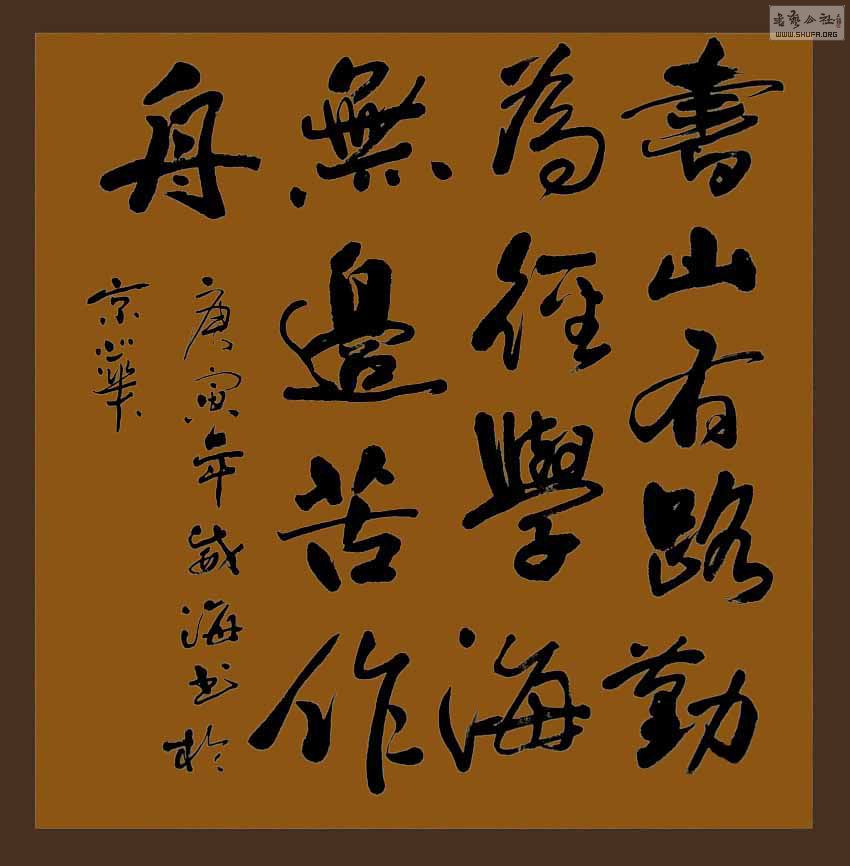 書山有路勤
為徑學海
無邊苦作
舟
庚寅年威海书於
京華
書藝公社
WWW.SHUFA.ORG